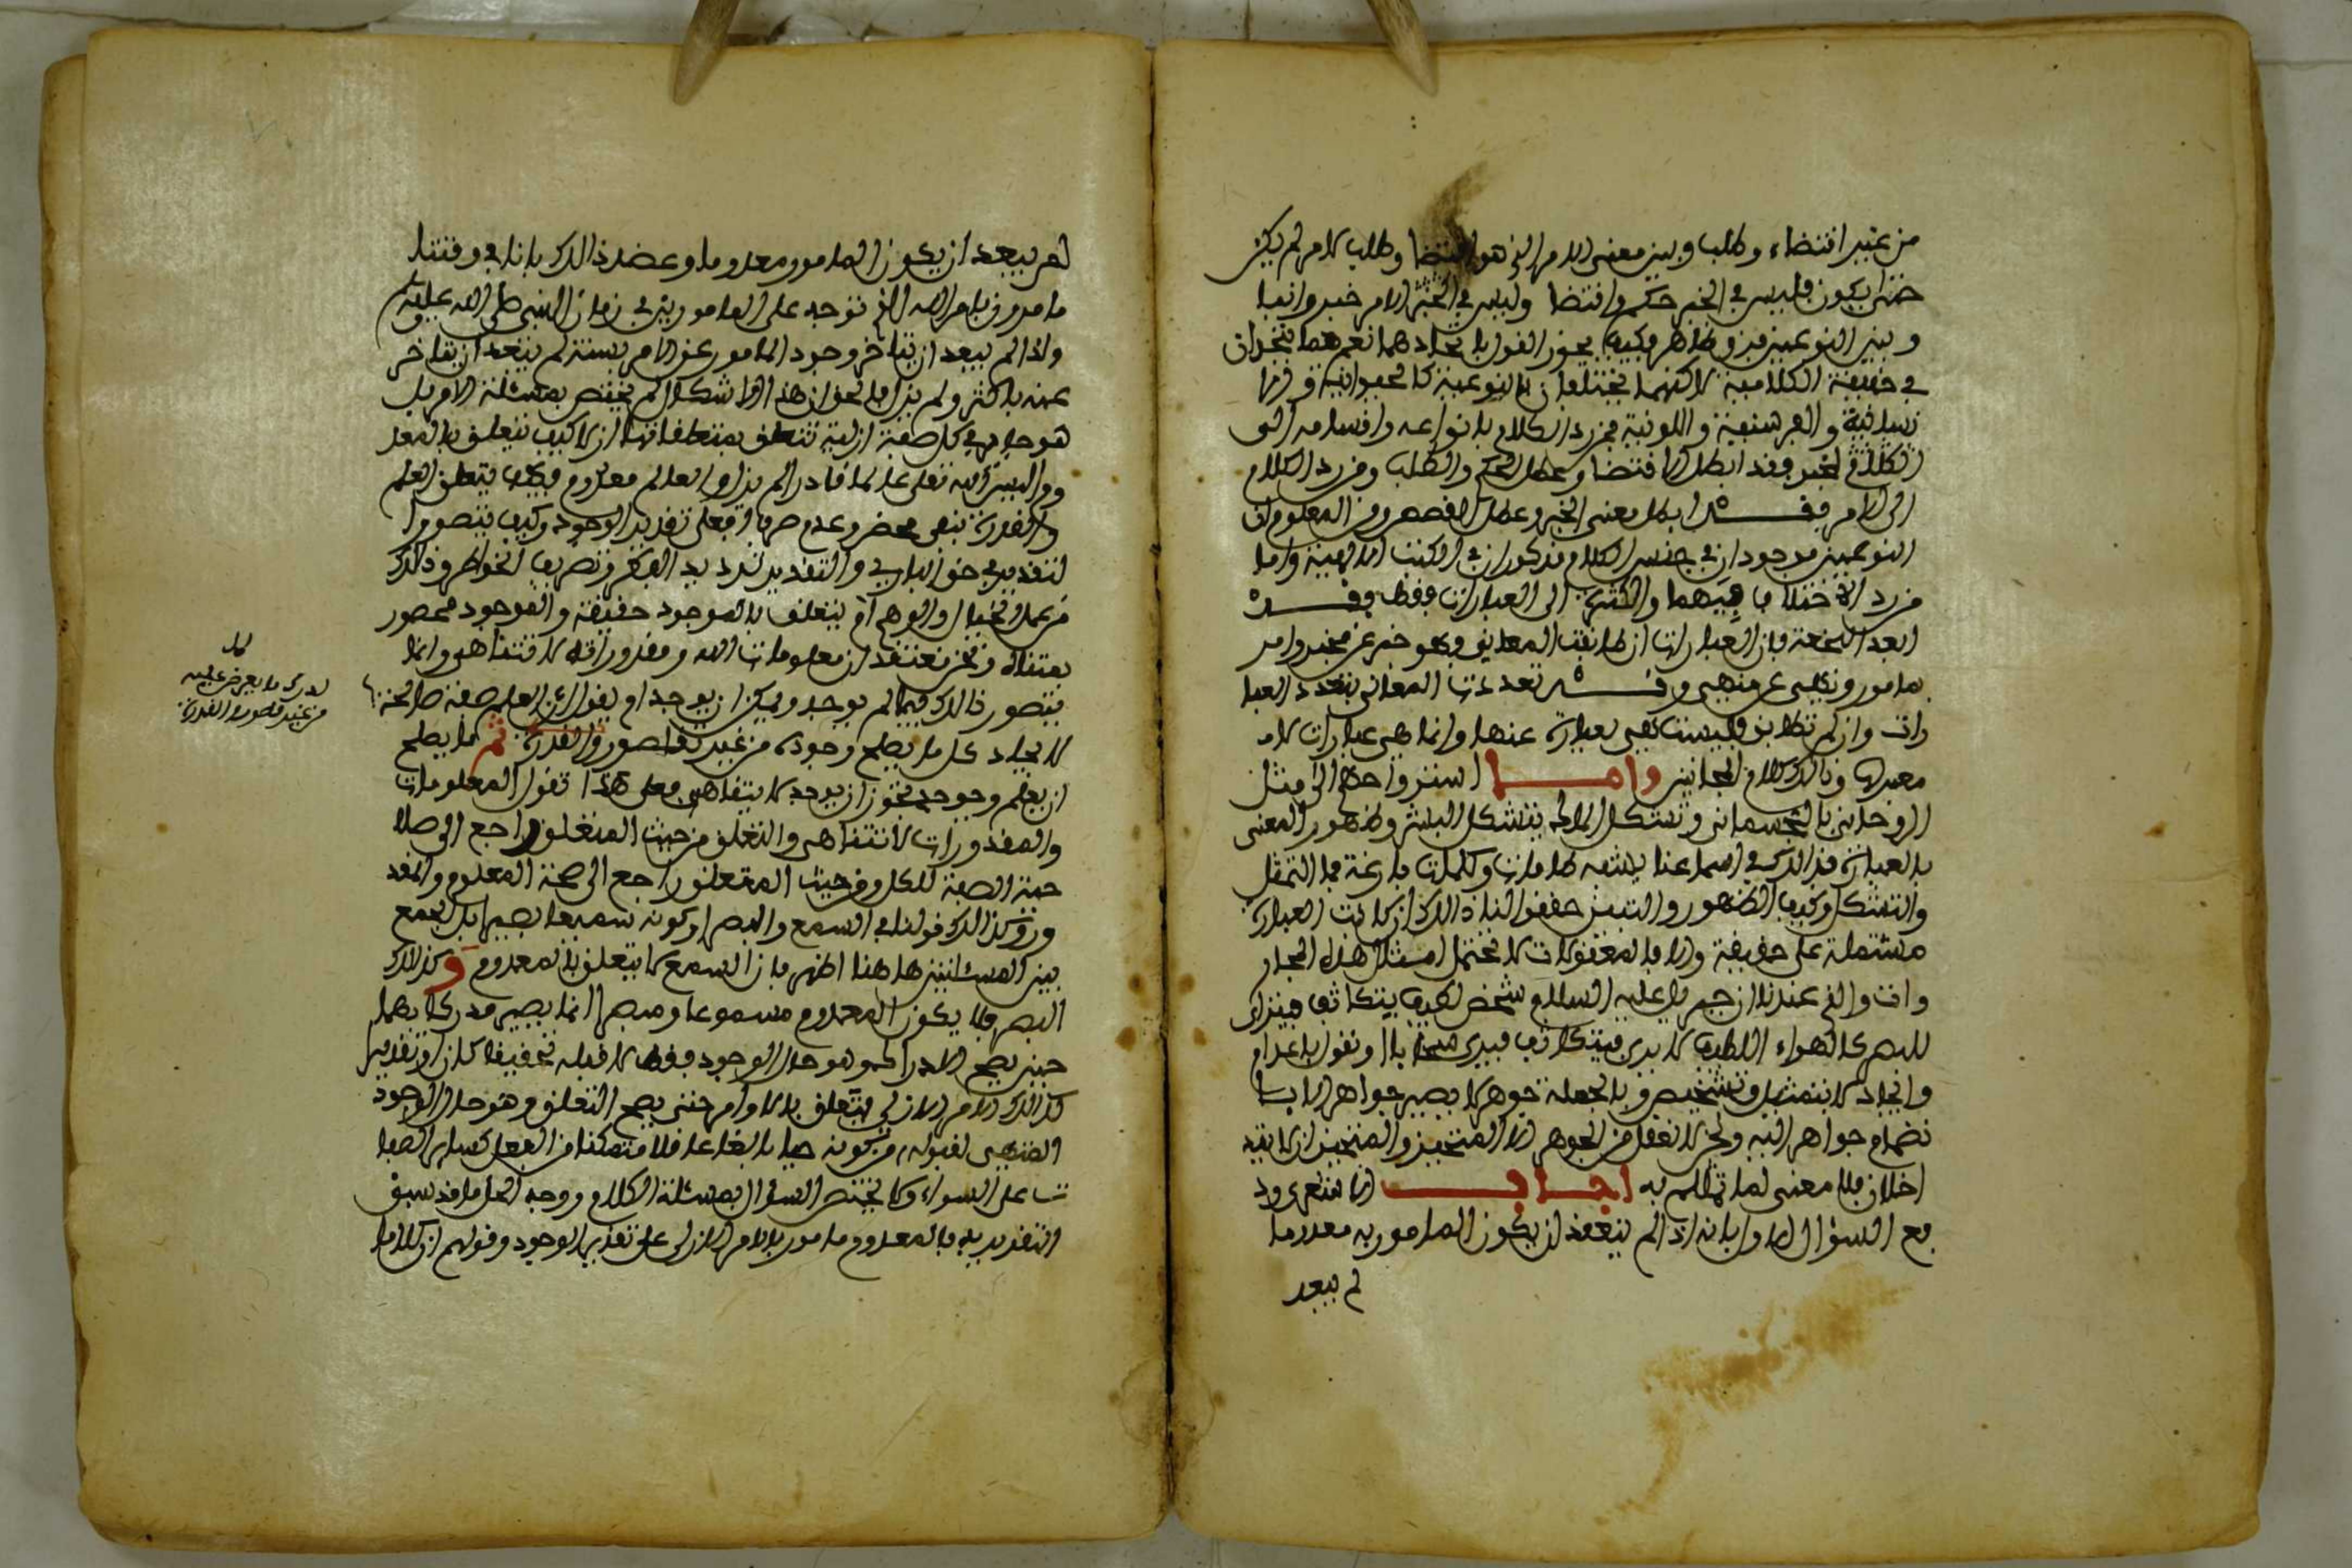 من غير اقتضاء وطلب وبين معنى الامر الذي هو اقتضا وطلب لامر لم يكن
حتى يكون فليس في الخبر حكم واقتضا وليس في الامر خبر وانبا
وبين النوعين فرق ظاهر فكيف يجوز القول باتحادهما نعم هما يتحدان
في حقيقة الكلامية لاكنهما يختلفان بالنوعية كالحيوانية في الا
نسانية والفرسية واللونية فمن رد الكلام بانواعه واقسامه الى
الخبر فقد ابطل الاقتضا وعطل الحكم والطلب ومن رد الكلام
الى الامر فقد ابطل معنى الخبر وعطل القصص ومن المعلوم ان
النوعين موجودان في جنس الكلام مذكوران في الكتب الالهية واما
من رد الاختلاف فيهما والكثرة الى العبارات فقط فقد
ابعد النجعة فان العبارات ان طابقت المعاني فهو خبر عن مخبر وامر
بمامور ونهي عن منهي وقد تعددت المعاني بتعدد العبا
رات وان لم تطابق فليست هي بعبارة عنها وانما هي عبارات لا
معبر لها وذالك كلام المجانين واما استرواحهم الى مثل
الروحاني بالجسماني وتشكل الملك بتشكل البشر وظهور المعنى
بالعبارة فذالك في اسماعنا يشبه طامات وكلمات فارغة فما التمثل
والتشكل وكيف الظهور والتبين حققوا لنا ذالك ان كانت العبارة
مشتملة على حقيقة والا فالمعقولات لا تحتمل امثال هذه المجاز
ات والذي عندنا ان جبريل عليه السلام شخص لطيف يتكاثف فيتراى
للبصر كالهواء اللطيف لا يرى فيتكاثف فيرى سحابا او نقول باعدام
وايجاد لا بتمثيل وتشخيص وبالجملة جوهر لا يصير جواهر الا با
نضمام جواهر اليه ونحن لا نعقل من الجوهر الا المتحيز والمتحيزان لا يتد
اخلان فلا معنى لما تمثلتم به اجابت الاشعرية ود
فع السؤال الاول بانه اذا لم يبعد ان يكون المامور به معدوما
لم يبعد
لم يبعد ان يكون المامور معدوما وعضد ذالك بانا في وقتنا
مامورون بامر الله الذي توجه على المامورين في زمان النبي صلى الله عليه وسلم
واذا لم يبعد ان يتاخر وجود المامور عن الامر بسنة لم يبعد ان يتاخر
عنه باكثر ولم يزل فلنحول هذا الاشكال لم يختص بمسئلة الامر بل
هو جار في كل صفة ازلية تتعلق بمتعلقاتها ازلا كيف تتعلق بالمعد
وم اليس الله تعلى عالما قادرا لم يزل والعالم معدوم فكيف يتعلق العلم
والقدرة بنفي محض وعدم صرف افعلى تقدير الوجود وكيف يتصور ا
لتقدير في حق الباري والتقدير ترديد الفكر وتصريف الخواطر وذالك
من عمل الخيال والوهم ام يتعلق بالموجود حقيقة والموجود محصور
متناه ونحن نعتقد ان معلومات الله ومقدوراته لا تتناهى وانما
يتصور ذالك فيما لم يوجد ويمكن ان يوجد ام نقول ان العلم صفة صالحة
لادراك ما يعرض عليه
من غير قصور والقدرة
لايجاد كل ما يصلح وجوده من غير تقاصر والقدرة ثم ما يصلح
ان يعلم ويجوز ان يوجد لا يتناهى فعلى هذا نقول المعلومات
والمقدورات لا تتناهى والتعلق من حيث المتعلق راجع الى صلا
حية الصفة للكل ومن حيث المتعلق راجع الى صحة المعلوم والمقد
ور وكذالك قولنا في السمع والبصر او كونه سميعا بصيرا بل الجمع
بين المسئلتين هاهنا اظهر فان السمع لا يتعلق بالمعدوم وكذالك
البصر فلا يكون المعدوم مسموعا ومبصرا انما يصير مدركا بهما
حين يصح الادراك وهو حال الوجود فقط لا قبله تحقيقا كان او تقديرا
كذالك الامر الازلي يتعلق بالمامور حتى يصح التعلق وهو حال الوجود
المتهيى لقبوله من كونه حيا بالغا عاقلا متمكنا من الفعل كساير الصفا
ت على السواء ولا يختص السؤال بمسئلة الكلام ووجه الحل ما قد سبق
التقدير به فالمعدوم مامور بالامر الازلي على تقدير الوجود وقولهم ان كلاما